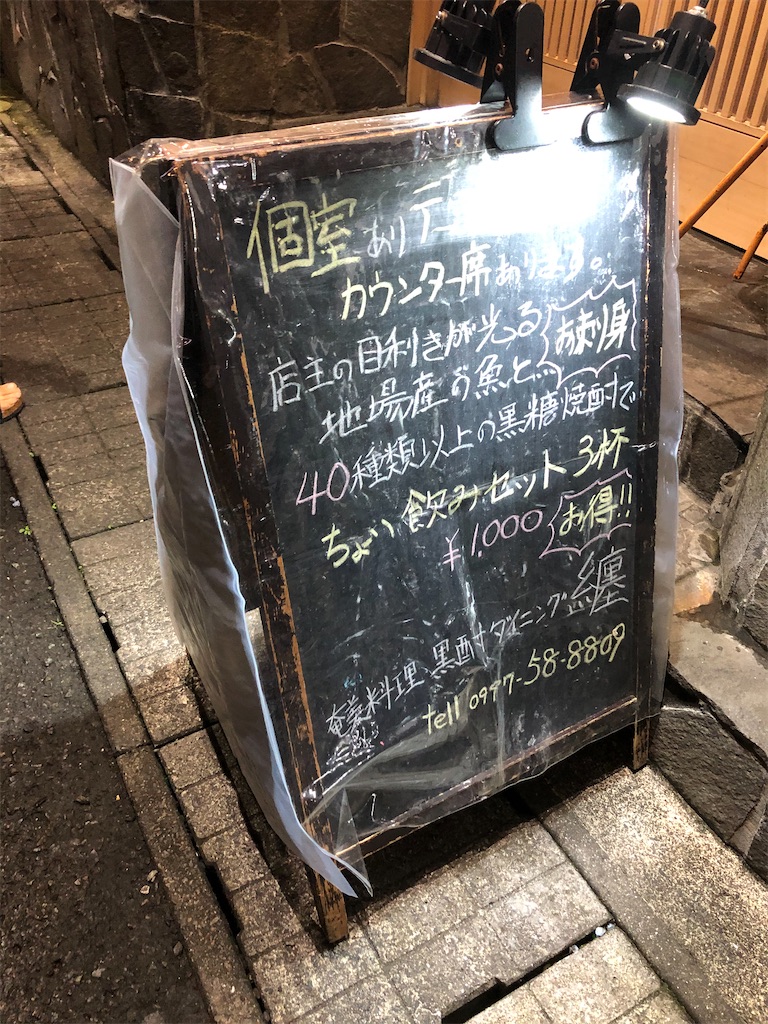 個室ありテ
カウンター席あります。
店主の目利きが光る
地場産の魚と、お刺身
40種類以上の黒糖焼酎で
ちょい飲みセット3杯
¥1,000 お得!!
奄美料理・黒酎ダイニング 纏
tell 0997-58-8809